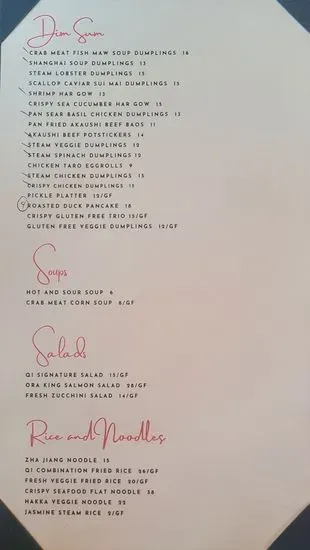 Dim Sum
CRAB MEAT FISH MAW SOUP DUMPLINGS 16
SHANGHAI SOUP DUMPLINGS 13
STEAM LOBSTER DUMPLINGS 15
SCALLOP CAVIAR SUI MAI DUMPLINGS 15
SHRIMP HAR GOW 13
CRISPY SEA CUCUMBER HAR GOW 15
PAN SEAR BASIL CHICKEN DUMPLINGS 13
PAN FRIED AKAUSHI BEEF BAOS 11
AKAUSHI BEEF POTSTICKERS 14
STEAM VEGGIE DUMPLINGS 12
STEAM SPINACH DUMPLINGS 12
CHICKEN TARO EGGROLLS 9
STEAM CHICKEN DUMPLINGS 13
CRISPY CHICKEN DUMPLINGS 11
PICKLE PLATTER 12/GF
4 ROASTED DUCK PANCAKE 18
CRISPY GLUTEN FREE TRIO 15/GF
GLUTEN FREE VEGGIE DUMPLINGS 12/GF
Soups
HOT AND SOUR SOUP 6
CRAB MEAT CORN SOUP 8/GF
Salads
QI SIGNATURE SALAD 15/GF
ORA KING SALMON SALAD 28/GF
FRESH ZUCCHINI SALAD 14/GF
Rice and Noodles
ZHA JIANG NOODLE 15
QI COMBINATION FRIED RICE 26/GF
FRESH VEGGIE FRIED RICE 20/GF
CRISPY SEAFOOD FLAT NOODLE 38
HAKKA VEGGIE NOODLE 22
JASMINE STEAM RICE 2/GF